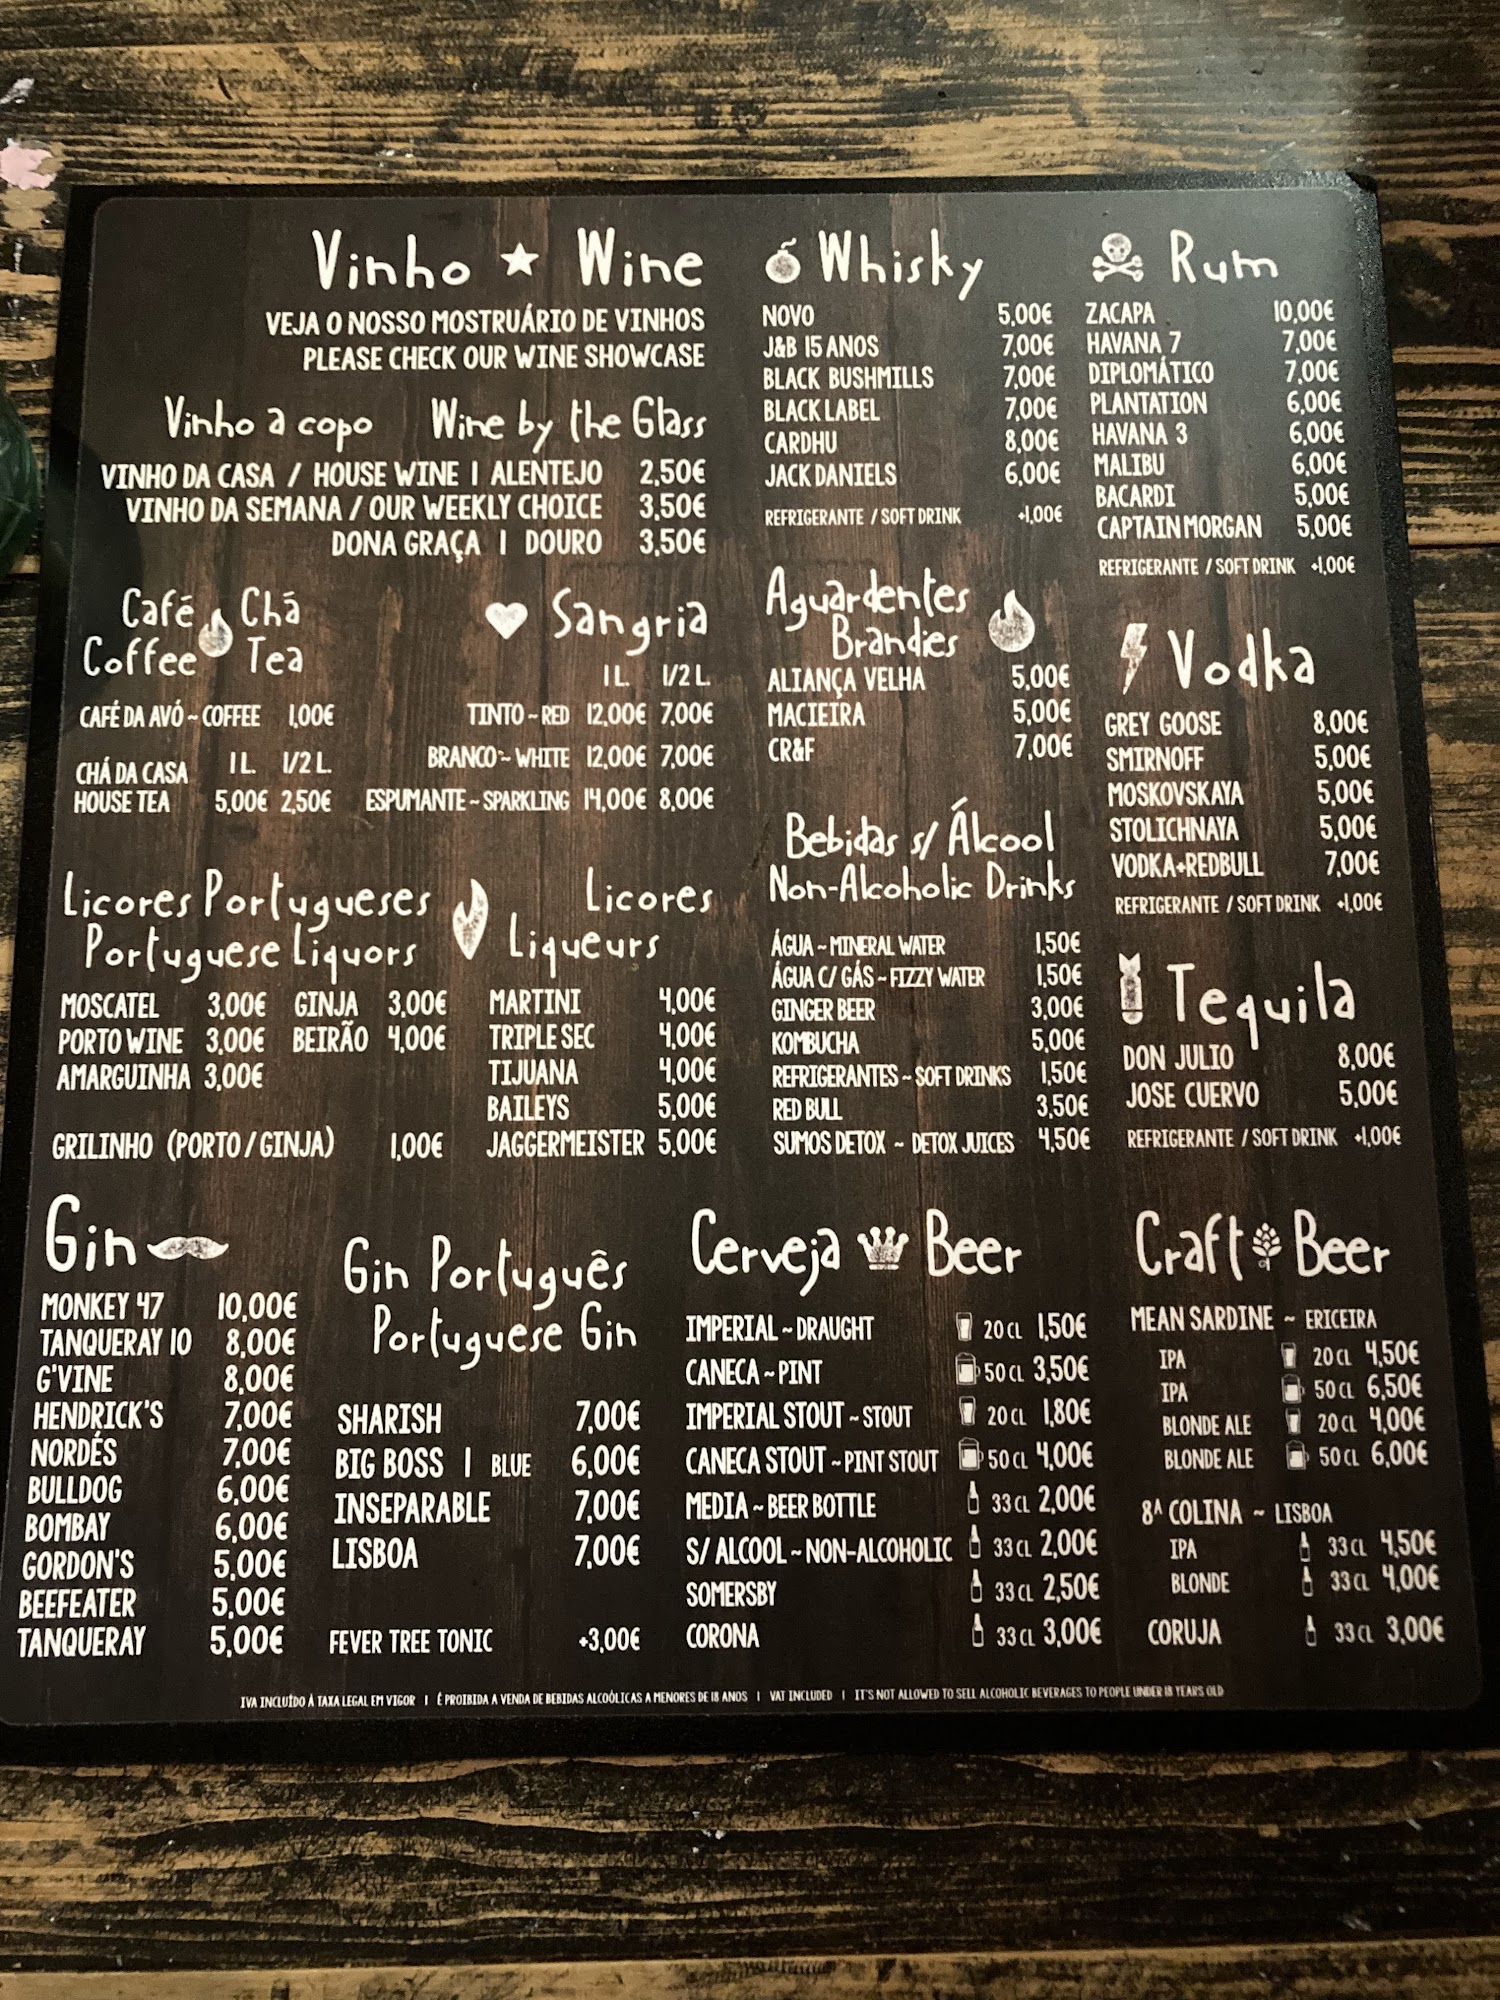 Vinho ★ Wine
VEJA O NOSSO MOSTRUÁRIO DE VINHOS
PLEASE CHECK OUR WINE SHOWCASE
Vinho a copo Wine by the Glass
VINHO DA CASA / HOUSE WINE | ALENTEJO 2,50€
VINHO DA SEMANA / OUR WEEKLY CHOICE 3,50€
DONA GRAÇA | DOURO 3,50€
Café Chá
Coffee Tea
CAFÉ DA AVÓ ~ COFFEE 1,00€
1 L 1/2 L
CHÁ DA CASA
HOUSE TEA 5,00€ 2,50€
Sangria
1 L 1/2 L
TINTO ~ RED 12,00€ 7,00€
BRANCO ~ WHITE 12,00€ 7,00€
ESPUMANTE ~ SPARKLING 14,00€ 8,00€
Licores Portugueses
Portuguese Liquors
MOSCATEL 3,00€ GINJA 3,00€
PORTO WINE 3,00€ BEIRÃO 4,00€
AMARGUINHA 3,00€
GRILINHO (PORTO / GINJA) 1,00€
Licores
Liqueurs
MARTINI 4,00€
TRIPLE SEC 4,00€
TIJUANA 4,00€
BAILEYS 5,00€
JAGGERMEISTER 5,00€
Whisky
NOVO 5,00€
J&B 15 ANOS 7,00€
BLACK BUSHMILLS 7,00€
BLACK LABEL 7,00€
CARDHU 8,00€
JACK DANIELS 6,00€
REFRIGERANTE / SOFT DRINK +1,00€
Aguardentes
Brandies
ALIANÇA VELHA 5,00€
MACIEIRA 5,00€
CR&F 7,00€
Bebidas s/ Álcool
Non-Alcoholic Drinks
ÁGUA ~ MINERAL WATER 1,50€
ÁGUA C/ GÁS ~ FIZZY WATER 1,50€
GINGER BEER 3,00€
KOMBUCHA 5,00€
REFRIGERANTES ~ SOFT DRINKS 1,50€
RED BULL 3,50€
SUMOS DETOX ~ DETOX JUICES 4,50€
Rum
ZACAPA 10,00€
HAVANA 7 7,00€
DIPLOMÁTICO 7,00€
PLANTATION 6,00€
HAVANA 3 6,00€
MALIBU 6,00€
BACARDI 5,00€
CAPTAIN MORGAN 5,00€
REFRIGERANTE / SOFT DRINK +1,00€
Vodka
GREY GOOSE 8,00€
SMIRNOFF 5,00€
MOSKOVSKAYA 5,00€
STOLICHNAYA 5,00€
VODKA+REDBULL 7,00€
REFRIGERANTE / SOFT DRINK +1,00€
Tequila
DON JULIO 8,00€
JOSE CUERVO 5,00€
REFRIGERANTE / SOFT DRINK +1,00€
Gin
MONKEY 47 10,00€
TANQUERAY 10 8,00€
G'VINE 8,00€
HENDRICK'S 7,00€
NORDÉS 7,00€
BULLDOG 6,00€
BOMBAY 6,00€
GORDON'S 5,00€
BEEFEATER 5,00€
TANQUERAY 5,00€
Gin Português
Portuguese Gin
SHARISH 7,00€
BIG BOSS | BLUE 6,00€
INSEPARABLE 7,00€
LISBOA 7,00€
FEVER TREE TONIC +3,00€
Cerveja Beer
IMPERIAL ~ DRAUGHT 20 CL 1,50€
CANECA ~ PINT 50 CL 3,50€
IMPERIAL STOUT ~ STOUT 20 CL 1,80€
CANECA STOUT ~ PINT STOUT 50 CL 4,00€
MEDIA ~ BEER BOTTLE 33 CL 2,00€
S/ ALCOOL ~ NON-ALCOHOLIC 33 CL 2,00€
SOMERSBY 33 CL 2,50€
CORONA 33 CL 3,00€
Craft Beer
MEAN SARDINE ~ ERICEIRA
IPA 20 CL 4,50€
IPA 50 CL 6,50€
BLONDE ALE 20 CL 4,00€
BLONDE ALE 50 CL 6,00€
8ª COLINA ~ LISBOA
IPA 33 CL 4,50€
BLONDE 33 CL 4,00€
CORUJA 33 CL 3,00€
IVA INCLUÍDO À TAXA LEGAL EM VIGOR | É PROIBIDA A VENDA DE BEBIDAS ALCOÓLICAS A MENORES DE 18 ANOS | VAT INCLUDED | IT'S NOT ALLOWED TO SELL ALCOHOLIC BEVERAGES TO PEOPLE UNDER 18 YEARS OLD